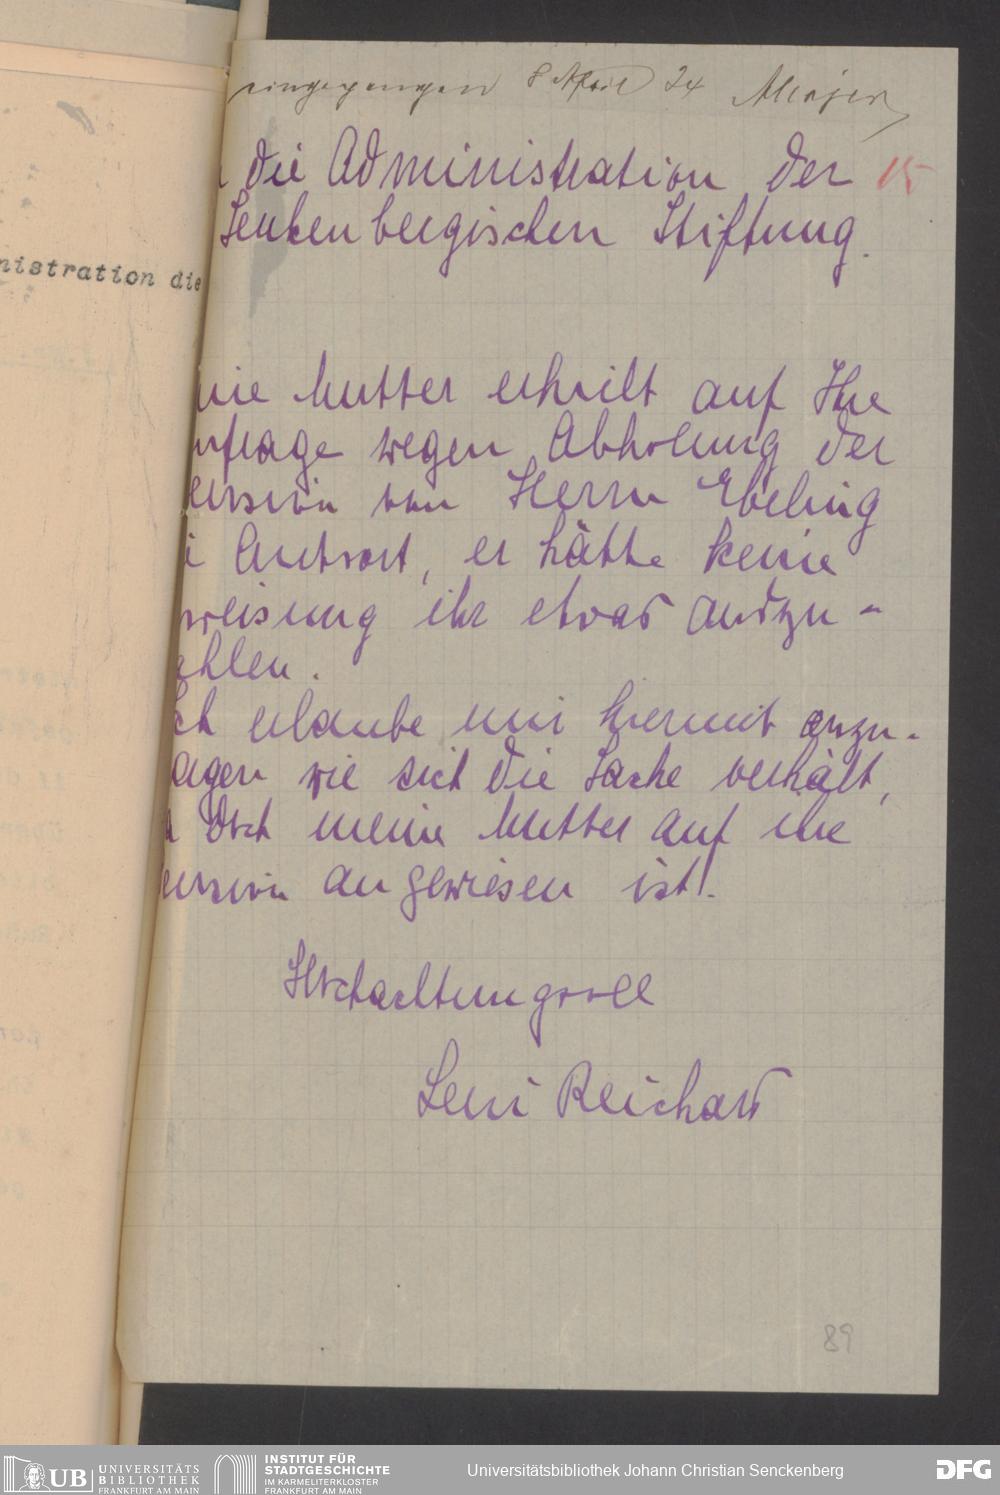 eingegangen 8 April 24
die Administration der 15
Senkenbergischen Stiftung.
nistration die
Mutter erhielt auf Ihre
nfrage wegen Abholung der
ension von Herrn Ebeling
Antwort, er hätte keine
weisung ihr etwas auszu-
ahlen.
Ich erlaube mir hiermit anzu-
agen wie sich die Sache verhält,
doch meine Mutter auf ihre
ension angewiesen ist!.
Hochachtungsvoll
Leni Reichard
89
UB UNIVERSITÄTS
BIBLIOTHEK
FRANKFURT AM MAIN
INSTITUT FÜR
STADTGESCHICHTE
IM KARMELITERKLOSTER
FRANKFURT AM MAIN
Universitätsbibliothek Johann Christian Senckenberg
DFG